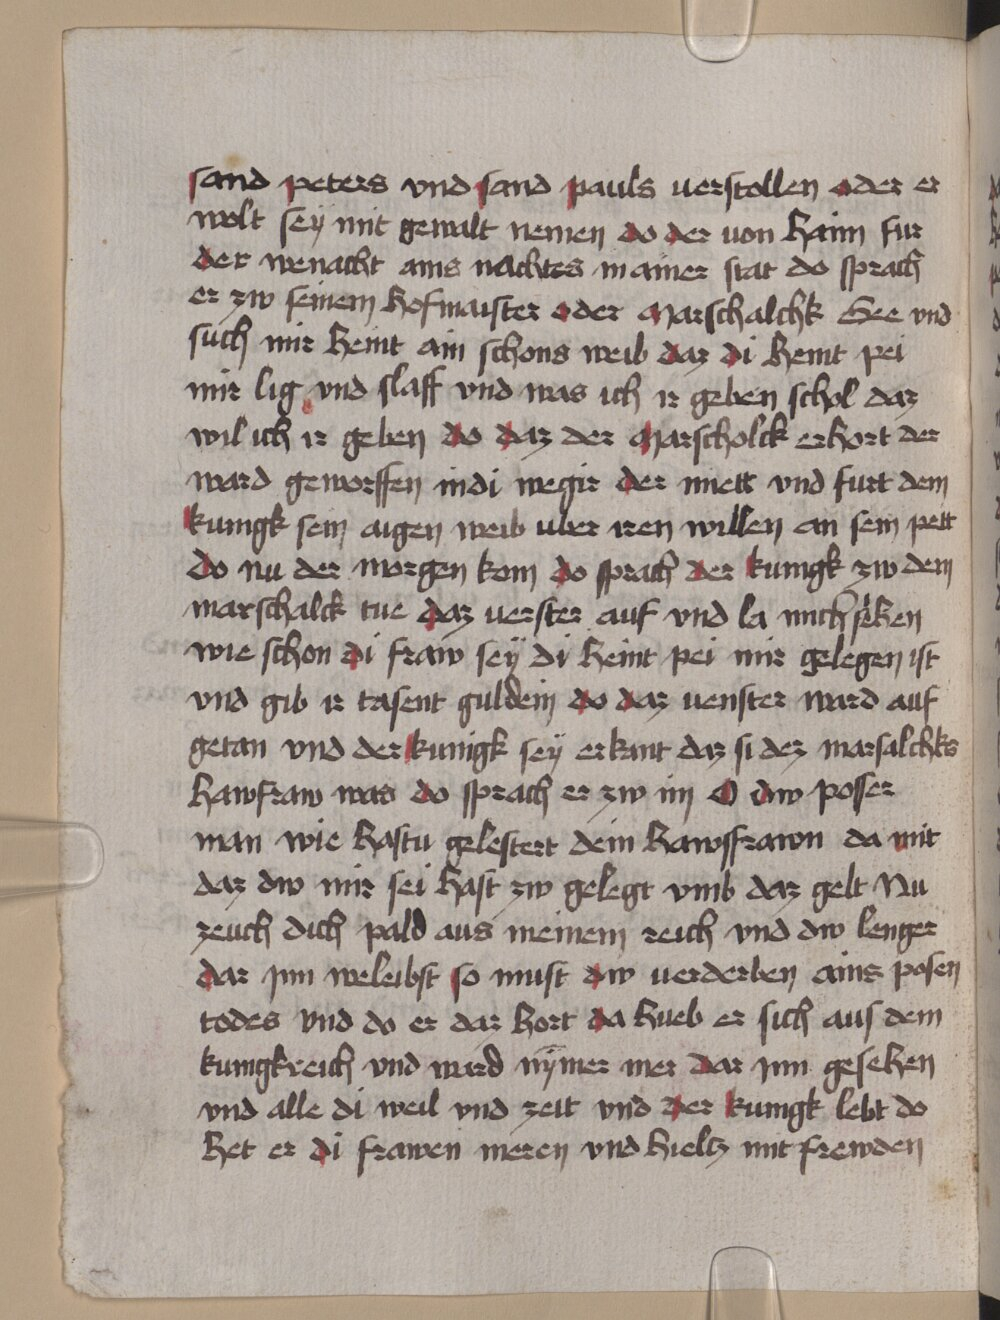 sand peters vnd sand pauls verstollen oder er
wolt seÿ mit gewalt nemen do der von haim fur
der wenacht ains nachtes in ainer stat do sprach
er zw seinem hofmaister oder Marschalchk Gee vnd
such mir heint ain schons weib daz di heint pei
mir lig vnd slaff vnd was ich ir geben schol daz
wil ich ir geben do daz der Marscholck erhort der
ward geworffen in di wegir der miett vnd furt dem
kunigk sein aigen weib vber iren willen an sein pett
do nu der morgen kom do sprach der kunigk zw dem
marschalck tue daz venster auf vnd la mich sehen
wie schon di fraw seÿ di heint pei mir gelegen ist
vnd gib ir tasent guldein do daz venster ward auf
getan vnd der kunigk seÿ erkant daz si dez marsalchks
hawfraw was do sprach er zw im O dw poser
man wie hastu gelestert dein hawsfrawn da mit
daz dw mir sei hast zw gelegt vmb daz gelt Nu
zeuch dich pald aus meinem reich vnd dw lenger
dar jnn weleibst so must dw verderben ains posen
todes vnd do er daz hort da hueb er sich aus dem
kunigkreich vnd ward nÿmer mer dar jnn gesehen
vnd alle di weil vnd zeit vnd der kunigk lebt do
het er di frawen in eren vnd hieltz mit frewden